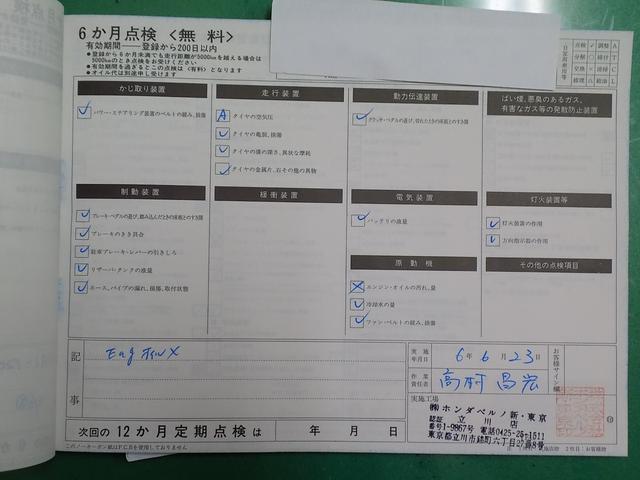 6か月点検〈無料〉
有効期間――登録から200日以内
●登録から6か月未満でも走行距離が5000kmを越える場合は
5000kmのとき点検をお受けください
●有効期間を過ぎるとこの点検は〈有料〉となります
●オイル代は別途申し受けます
点検 レ 調整 A
分解 締付 T
交換 × 清掃 C
修理 △ 給油 L
かじ取り装置
レ パワー・ステアリング装置のベルトの緩み、損傷
走行装置
A タイヤの空気圧
レ タイヤの亀裂、損傷
レ タイヤの溝の深さ、異状な摩耗
レ タイヤの金属片、石その他の異物
動力伝達装置
レ クラッチ・ペダルの遊び、切れたときの床板とのすき間
ばい煙、悪臭のあるガス、
有害なガス等の発散防止装置
制動装置
レ ブレーキ・ペダルの遊び、踏み込んだときの床板とのすき間
レ ブレーキのきき具合
レ 駐車ブレーキ・レバーの引きしろ
レ リザーバ・タンクの液量
レ ホース、パイプの漏れ、損傷、取付状態
緩衝装置
電気装置
レ バッテリの液量
原動機
× エンジン・オイルの汚れ、量
レ 冷却水の量
レ ファン・ベルトの緩み、損傷
灯火装置等
レ 灯火装置の作用
レ 方向指示器の作用
その他の点検項目
記事
Eng オイルX
実施年月日 6年6月23日
作業責任者 高村昌宏
お客様サイン欄
実施工場
㈱ホンダベルノ新・東京
立川店
認証番号1-9867号 電話0425-25-1511
東京都立川市錦町六丁目27番8号
次回の12か月定期点検は 年 月 日
このノーカーボン紙はP.C.B.を使用しておりません